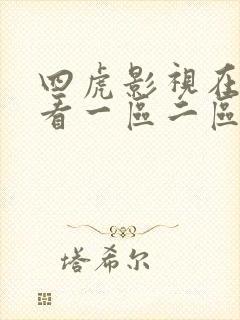 四虎影視在
看一區二區
塔希尔